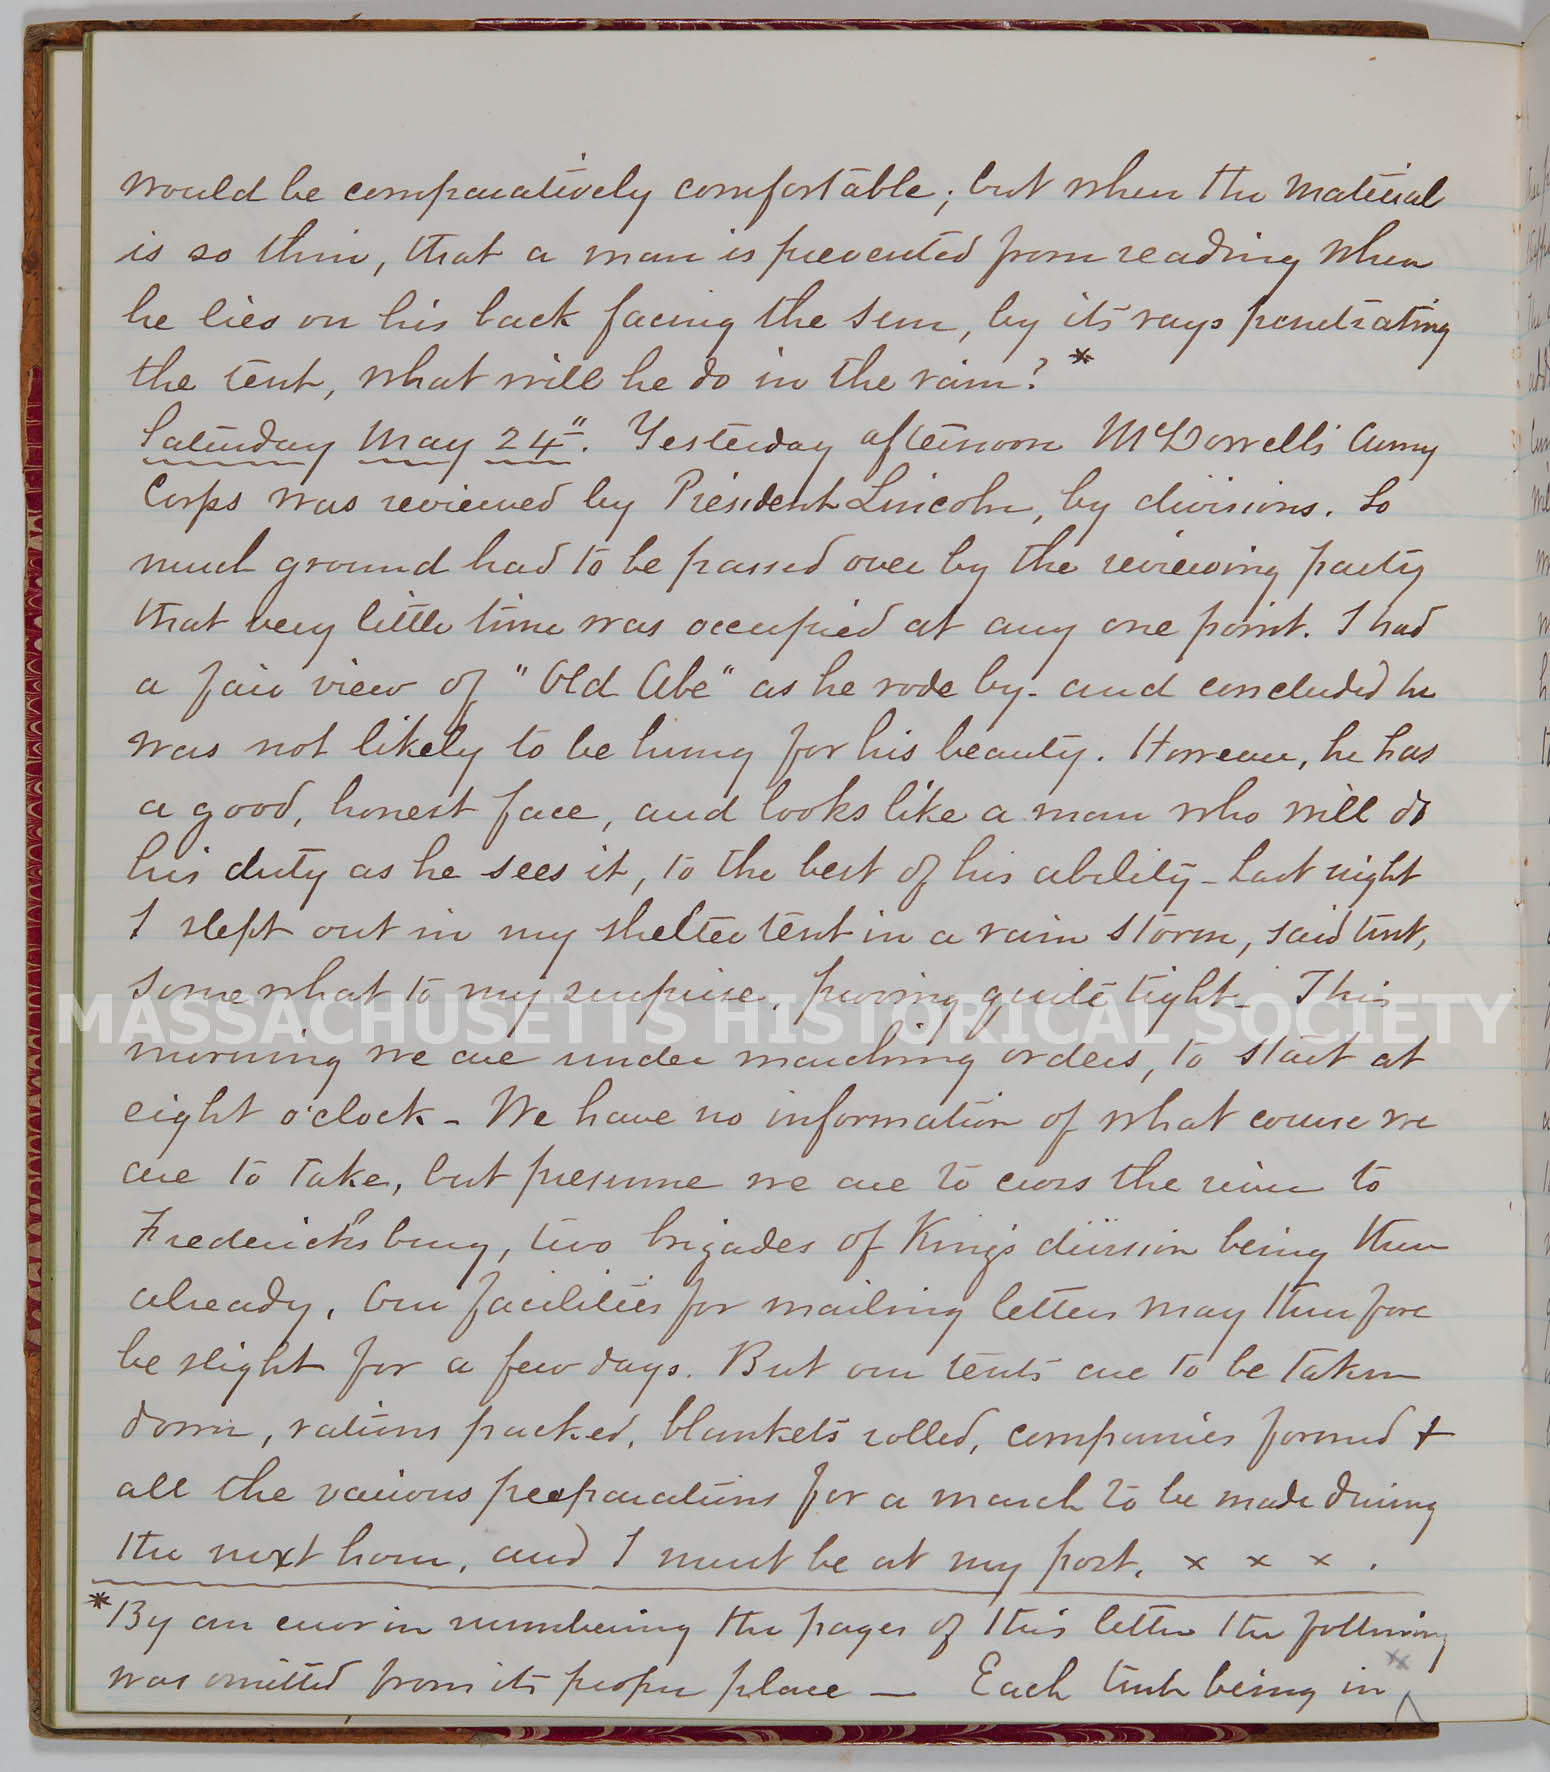 would be comparatively comfortable; but when the material
is so thin, that a man is prevented from reading when
he lies on his back facing the sun, by its rays penetrating
the tent, what will he do in the rain? *
Saturday May 24". Yesterday afternoon McDowell's Army
Corps was reviewed by President Lincoln, by divisions. So
much ground had to be passed over by the reviewing party
that very little time was occupied at any one point. I had
a fair view of "Old Abe" as he rode by - and concluded he
was not likely to be hung for his beauty. However, he has
a good, honest face, and looks like a man who will do
his duty as he sees it, to the best of his ability - Last night
I slept out in my shelter tent in a rain storm, said tent,
somewhat to my surprise, proving quite tight - This
MASSACHUSETTS HISTORICAL SOCIETY
morning we are under marching orders, to start at
eight o'clock - We have no information of what course we
are to take, but presume we are to cross the river to
Fredericksburg, two brigades of King's division being there
already. Our facilities for mailing letters may therefore
be slight for a few days. But our tents are to be taken
down, rations packed, blankets rolled, companies formed +
all the various preparations for a march to be made during
the next hour, and I must be at my post. x x x .
* By an error in numbering the pages of this letter the following
was omitted from its proper place — Each tent being in